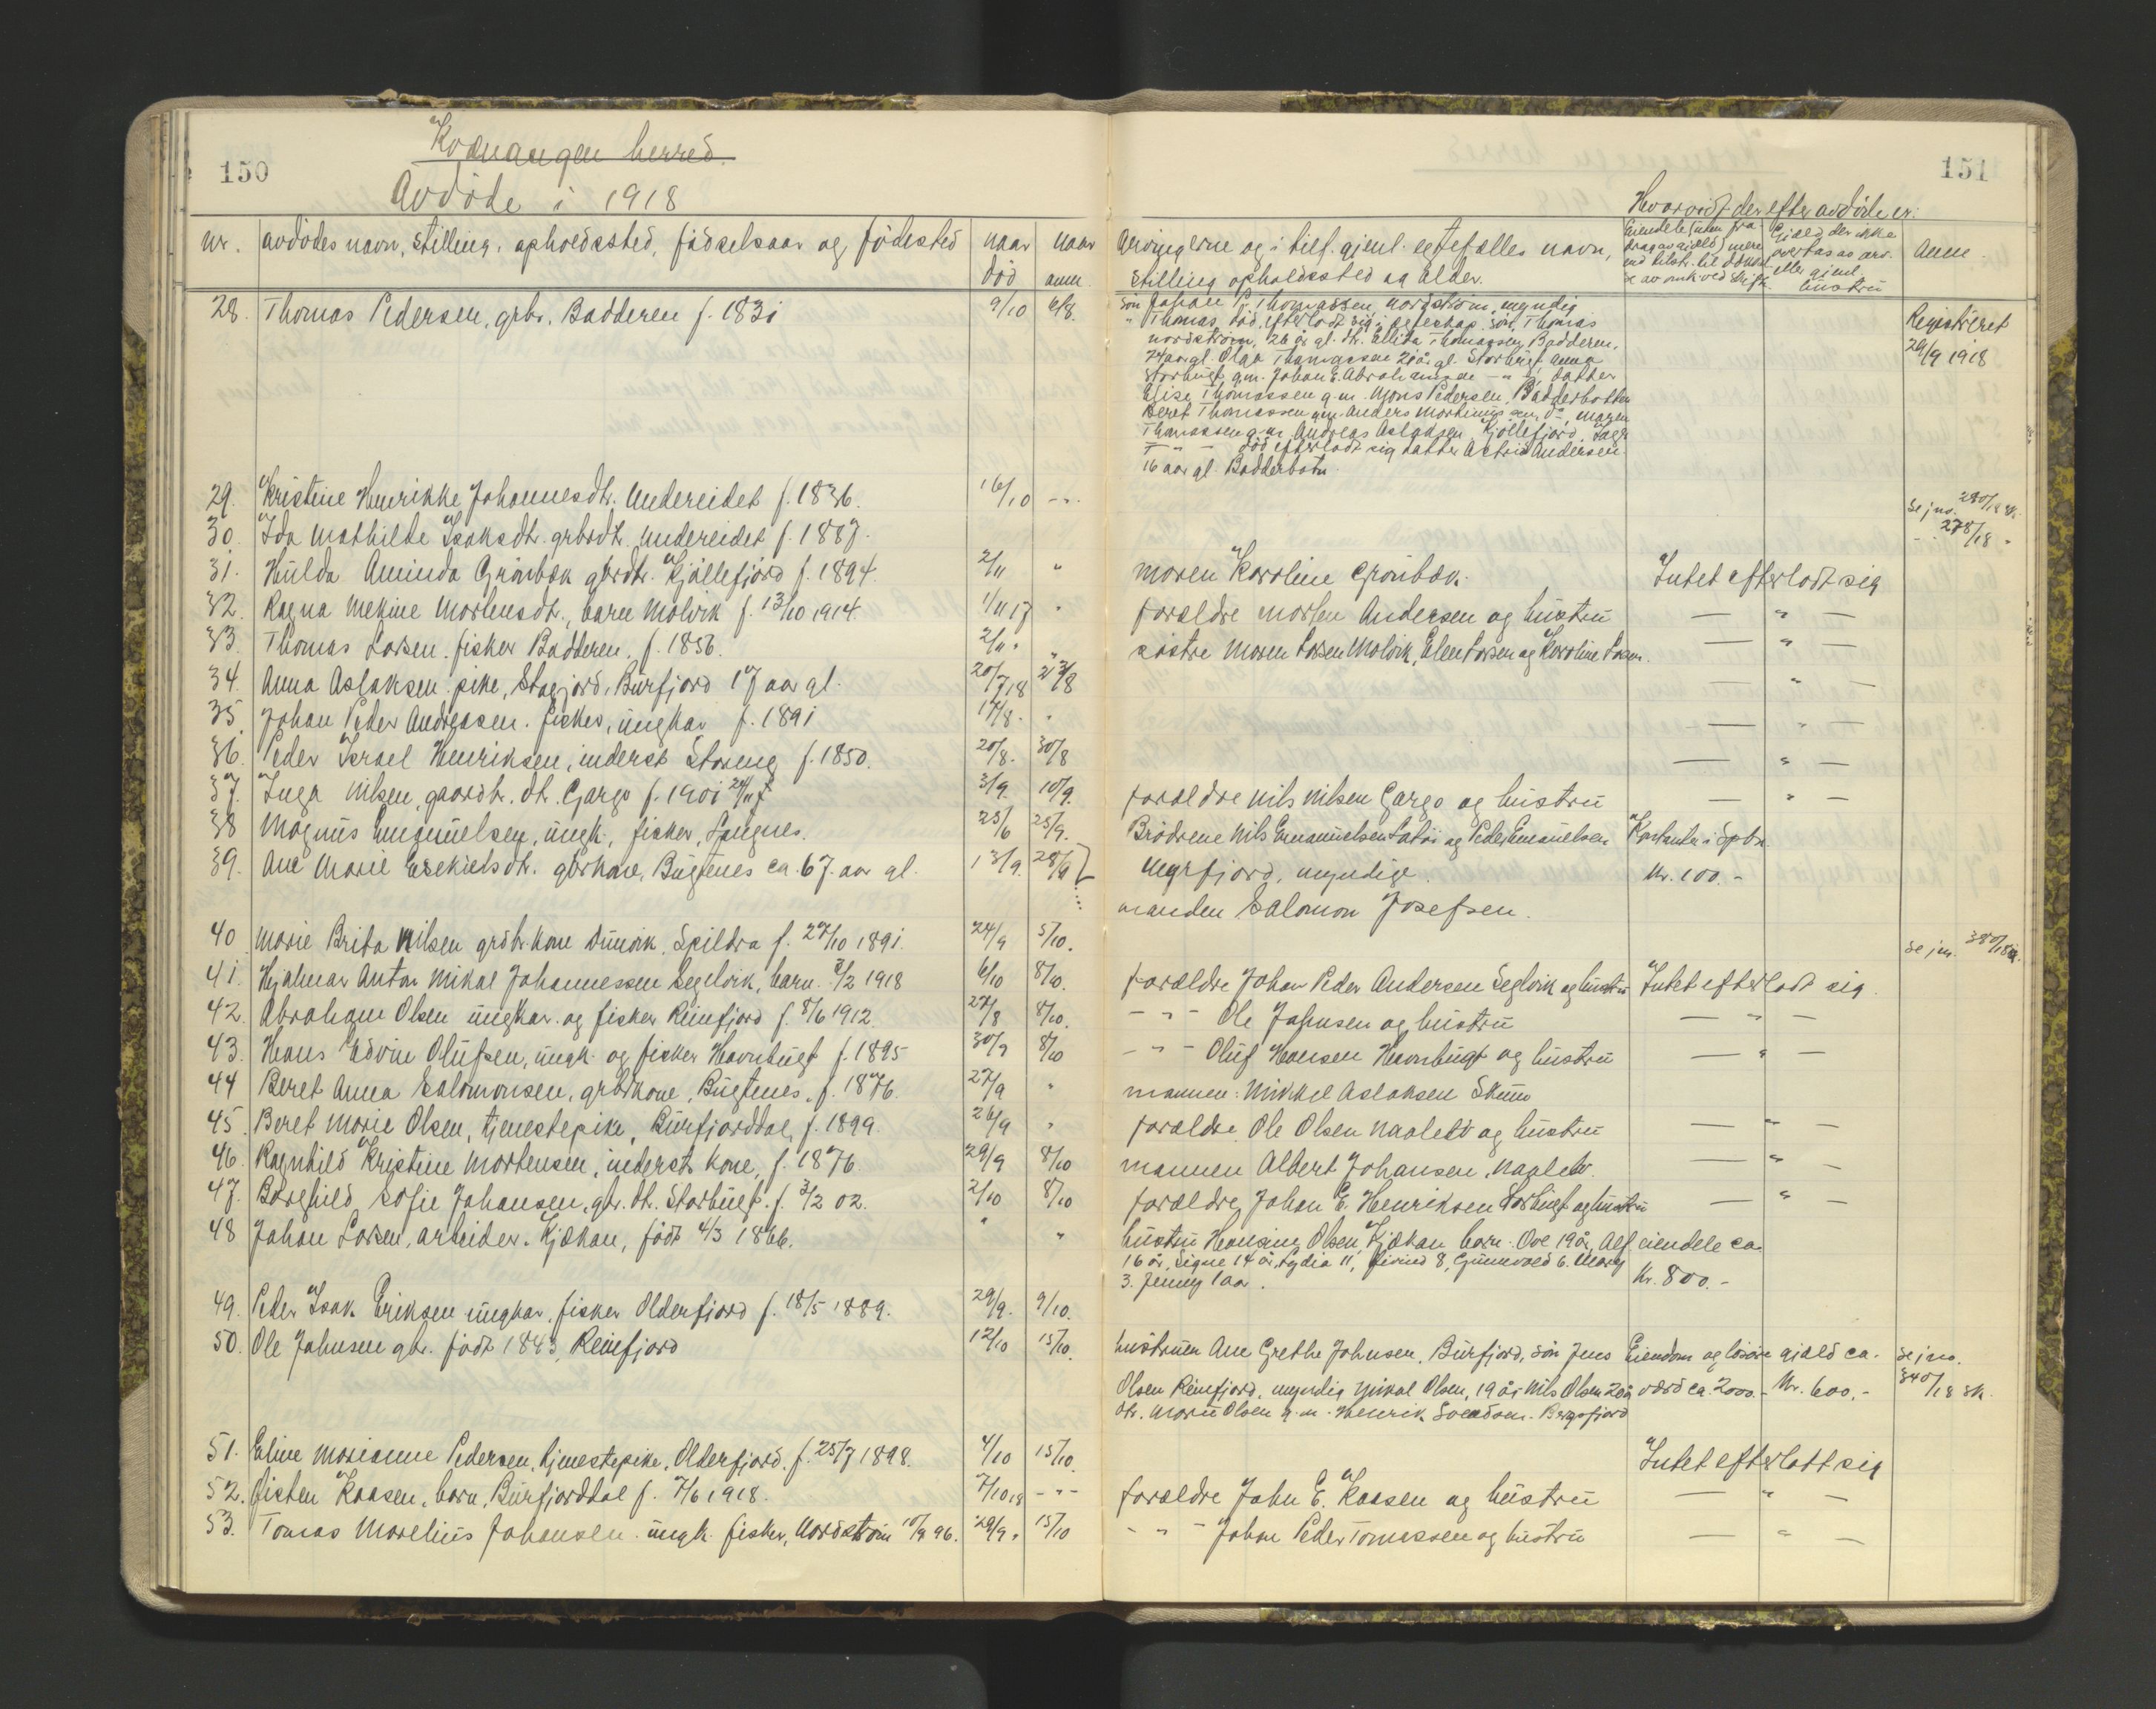 150
Kvænangen herred.
Avdöde i 1918
nr. avdödes navn, stilling, opholdssted, födselsaar og födested naar död naar anm.
28. Thomas Pedersen, grbr. Badderen f. 1831 9/10 6/8.
29. Kristine Henrikke Johannesdtr. Undereidet f. 1836. 16/10 -"-
30. Ida Mathilde Isaksdtr. grbrdtr. Undereidet f. 1887.
31. Hulda Aminda Grönbæk gbrdtr. Kjöllefjord f. 1894. 2/11 "
32. Ragna Mekine Mortensdtr., barn Molvik f. 13/10 1914. 1/11 17 "
33. Thomas Larsen. fisker Badderen. f. 1856. 2/11 "
34. Anna Aslaksen. pike, Stagjord, Burfjord 17 aar gl. 20/7 18 23/8
35. Johan Peder Andreassen. fisker, ungkar f. 1891 17/8. "
36. Peder Israel Henriksen, inderst Storeng f. 1850. 20/8. 30/8
37. Inga Nilsen, gaardbr. dtr. Gargo f. 1901 24/11 3/9. 10/9.
38 Magnus Emanuelsen, ungk., fisker, Langnes. 23/6 25/9.
39. Ane Marie Esekielsdtr. gbrkone, Bugtenes ca. 67. aar gl. 13/9. 28/9
40 Marie Brita Nilsen grdbr. kone Dunvik, Spildra f. 27/10 1891. 24/9 5/10.
41. Hjalmar Anton Mikal Johannessen Segelvik, barn. 2/2 1918 6/10 8/10.
42. Abraham Olsen ungkar og fisker Reinfjord f. 8/6 1912 27/8 8/10.
43. Hans Edvin Olufsen, ungk. og fisker Havnbugt f. 1895 30/9 8/10
44 Beret Anna Salomonsen, grbrkone, Bugtenes, f. 1876. 27/9 "
45. Beret Marie Olsen, tjenestepike, Burfjorddal, f. 1899. 26/9 "
46. Ragnhild Kristine Mortensen, inderst kone, f. 1876 29/9 8/10
47. Borghild Sofie Johansen, gbr. dtr. Storbugt. f. 3/2 02. 2/10 8/10
48 Johan Larsen, arbeider. Kjækan, födt 4/3 1866. " "
49. Peder Isak Eriksen ungkar, fisker Olderfjord f. 18/5 1889. 29/9. 9/10.
50. Ole Johnsen gbr. födt 1843, Reinfjord 12/10 15/10.
51. Eline Marianne Pedersen, tjenestepike, Olderfjord. f. 25/7 1898. 4/10 15/10.
52. Eisten Kaasen, barn, Burfjorddal f. 7/6 1918. 7/10 18 -"-
53. Tomas Marelius Johansen. ungk. fisker, Nordström 10/9 96. 29/9 " 15/10
151
Hvorvidt der efter avdöde er:
Arvingerne og i tilf. gjenl. egtefælles navn, stilling opholdssted og alder.
Gjæld der ikke overtas av arv. eller gjenl. hustru
Anm.
sön Johan P. Thomassen, Nordström, myndig
" Thomas, död, efterlodt sig i egteskap sön Thomas
Nordström, 26 år gl. dtr. Ellida Thomassen, Badderen,
24 aar gl. Olga Thomassen 20 år gl. Storbugt, Anna
Storbugt, g.m. Johan E. Abrahamsen -"-, datter
Elise Thomassen g.m. Mons Pedersen, Badderbotten
Beret Thomassen g.m. Anders Mortensen, do, Maren
Thomassen g.m. Andreas Aslaksen, Kjöllefjord,
död efterlodt sig datter Astrid Andersen
16 aar gl. Badderbotn
Registreret
29/9 1918
se jno. 280/18 sk.
-"- 278/18 "
moren Karoline Grönbæk. Intet efterlodt sig
forældre Morten Andersen og hustru — " —
söstre Maren Larsen Molvik, Elen Larsen og Karoline Larsen. — " —
— " —
— " —
— " —
forældre Nils Nilsen Gargo og hustru — " —
Brödrene Nils Emanuelsen Latöi og Peder Emanuelsen Kontanter i Spbk.
Myrfjord, myndige. kr. 100.-
manden Salomon Josefsen.
se jn. 380/18
forældre Johan Peder Andersen Seglvik og hustru Intet efterlodt sig.
-"- Ole Johnsen og hustru — " —
-"- Oluf Hansen Havnbugt og hustru — " —
mannen: Mikkel Aslaksen Skum
forældre Ole Olsen Naalelv og hustru — " —
mannen Albert Johansen, Naalelv. — " —
forældre Johan E. Henriksen Storbugt og hustru — " —
hustru Hansine Olsen, Kjækan barn. Ove 19 år, Alf eiendele ca.
16 år, Signe 14 år, Lydia 11, Eivind 8, Gunvald 6. Mary
3. Jenny 1 aar. Kr. 800.-
hustruen Ane Grethe Johnsen, Burfjord, sön Jens Eiendom og lösöre gjæld ca. se jno.
Olsen Reinfjord, myndig Mikal Olsen, 19 år Nils Olsen 20 å værd ca. 2000.- kr. 600.- 340/18 sk.
dtr. Marie Olsen g.m. Henrik Svendsen. Bergsfjord
Intet efterlatt sig
forældre John E. Kaasen og hustru — " —
-"- Johan Peder Tomassen og hustru — " —